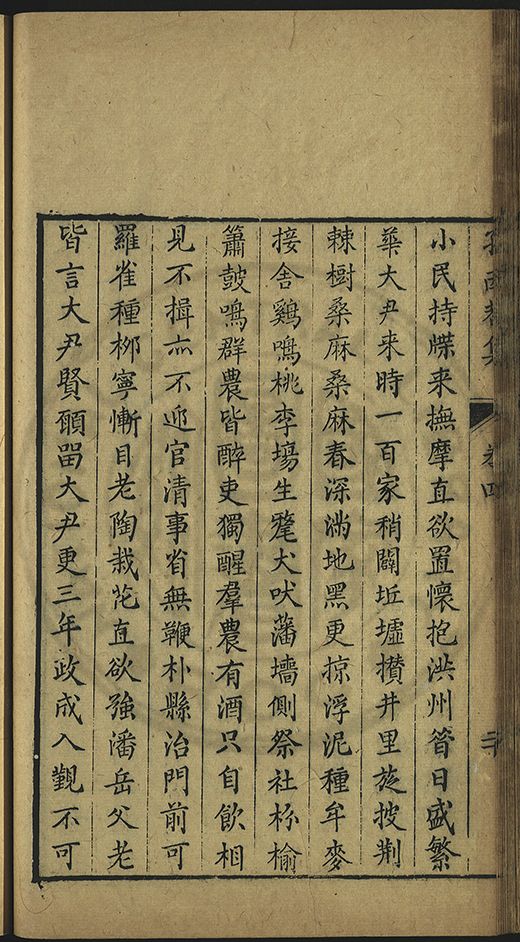 小民持牒来撫摩直欲置懷抱洪州昝日盛繁
華大尹来時一百家稍闢坵墟攅井里旋披荆
棘樹桑麻桑麻春深满地黑更掠浮泥種牟麥
接舍鷄鳴桃李塲生氂犬吠藩墻側祭社枌榆
簫鼓鳴群農皆醉吏獨醒羣農有酒只自飲相
見不揖亦不迎官清事省無鞭朴縣治門前可
羅雀種桞寧慚目老陶栽花直欲強潘岳父老
皆言大尹賢願畄大尹更三年政成入覲不可
卷四